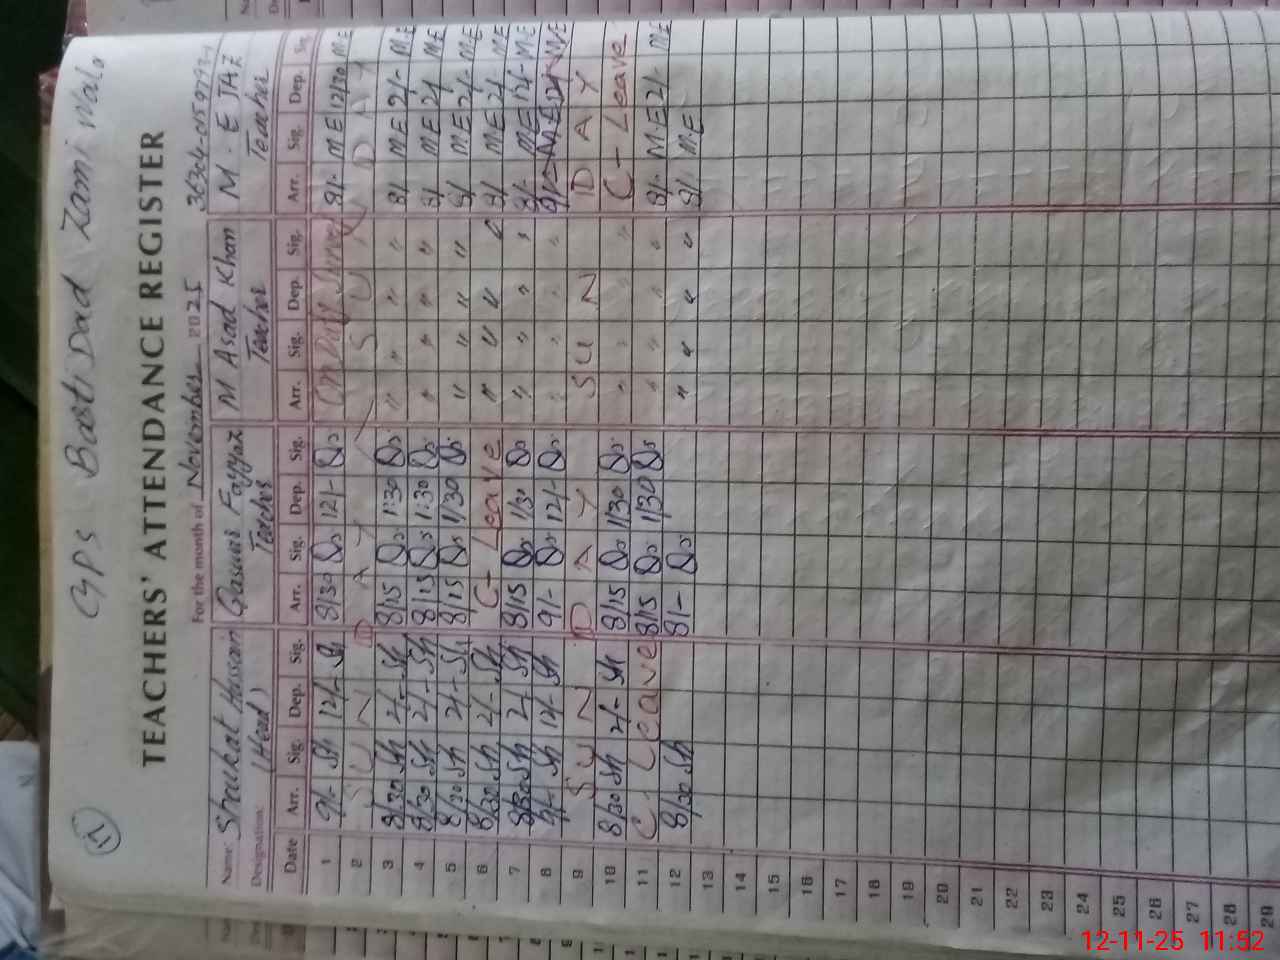 17
GPS Basti Dad Zami wala
TEACHERS' ATTENDANCE REGISTER
For the month of November 2025
Name: Shaukat Hassain Qasuar Fayyaz M Asad Khan M. ETAZ
Designation: (Head) Teacher Teacher Teacher
Date Arr. Sig. Dep. Sig. Arr. Sig. Dep. Sig. Arr. Sig. Dep. Sig. Arr. Sig. Dep.
1 9/- Sh 12/- Sh 8/30 Qs 12/- Qs On Duty Survey 8/- ME 12/30 ME
2 S U N D A Y S U N D A Y
3 8/30 Sh 2/- Sh 8/15 Qs 1:30 Qs " " " " 8/ ME 2/- ME
4 8/30 Sh 2/- Sh 8/15 Qs 1:30 Qs " " " " 8/ ME 2/ ME
5 8/30 Sh 2/- Sh 8/15 Qs 1/30 Qs " " " " 8/ ME 2/- ME
6 8/30 Sh 2/- Sh C- Leave " " " " 8/ ME 2/- ME
7 8/30 Sh 2/- Sh 8/15 Qs 1/30 Qs " " " " 8/- ME 12/- ME
8 9/- Sh 12/- Sh 9/- Qs 12/- Qs " " " " ME
9 S U N D A Y S U N D A Y
10 8/30 Sh 2/- Sh 8/15 Qs 1/30 Qs " " " " C- Leave
11 C- Leave 8/15 Qs 1/30 Qs " " " " 8/- M.E 2/- ME
12 8/30 Sh 8/- Qs " " " " 8/ ME
13
14
15
16
17
18
19
20
21
22
23
24
25
26
27
28
29
12-11-25 11:52